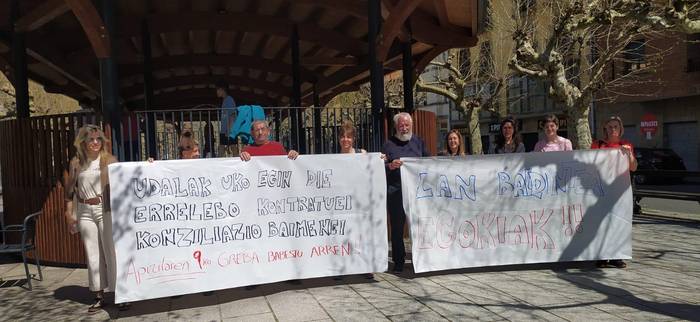 UDALAK UKO EGIN DIE
ERRELEBO KONTRATUEI
KONZILIAZIO BAIMENEI
Apirilaren 9ko GREBA BABESTU ARREN!!
LAN BALDINTZA
EGOKIAK!!!